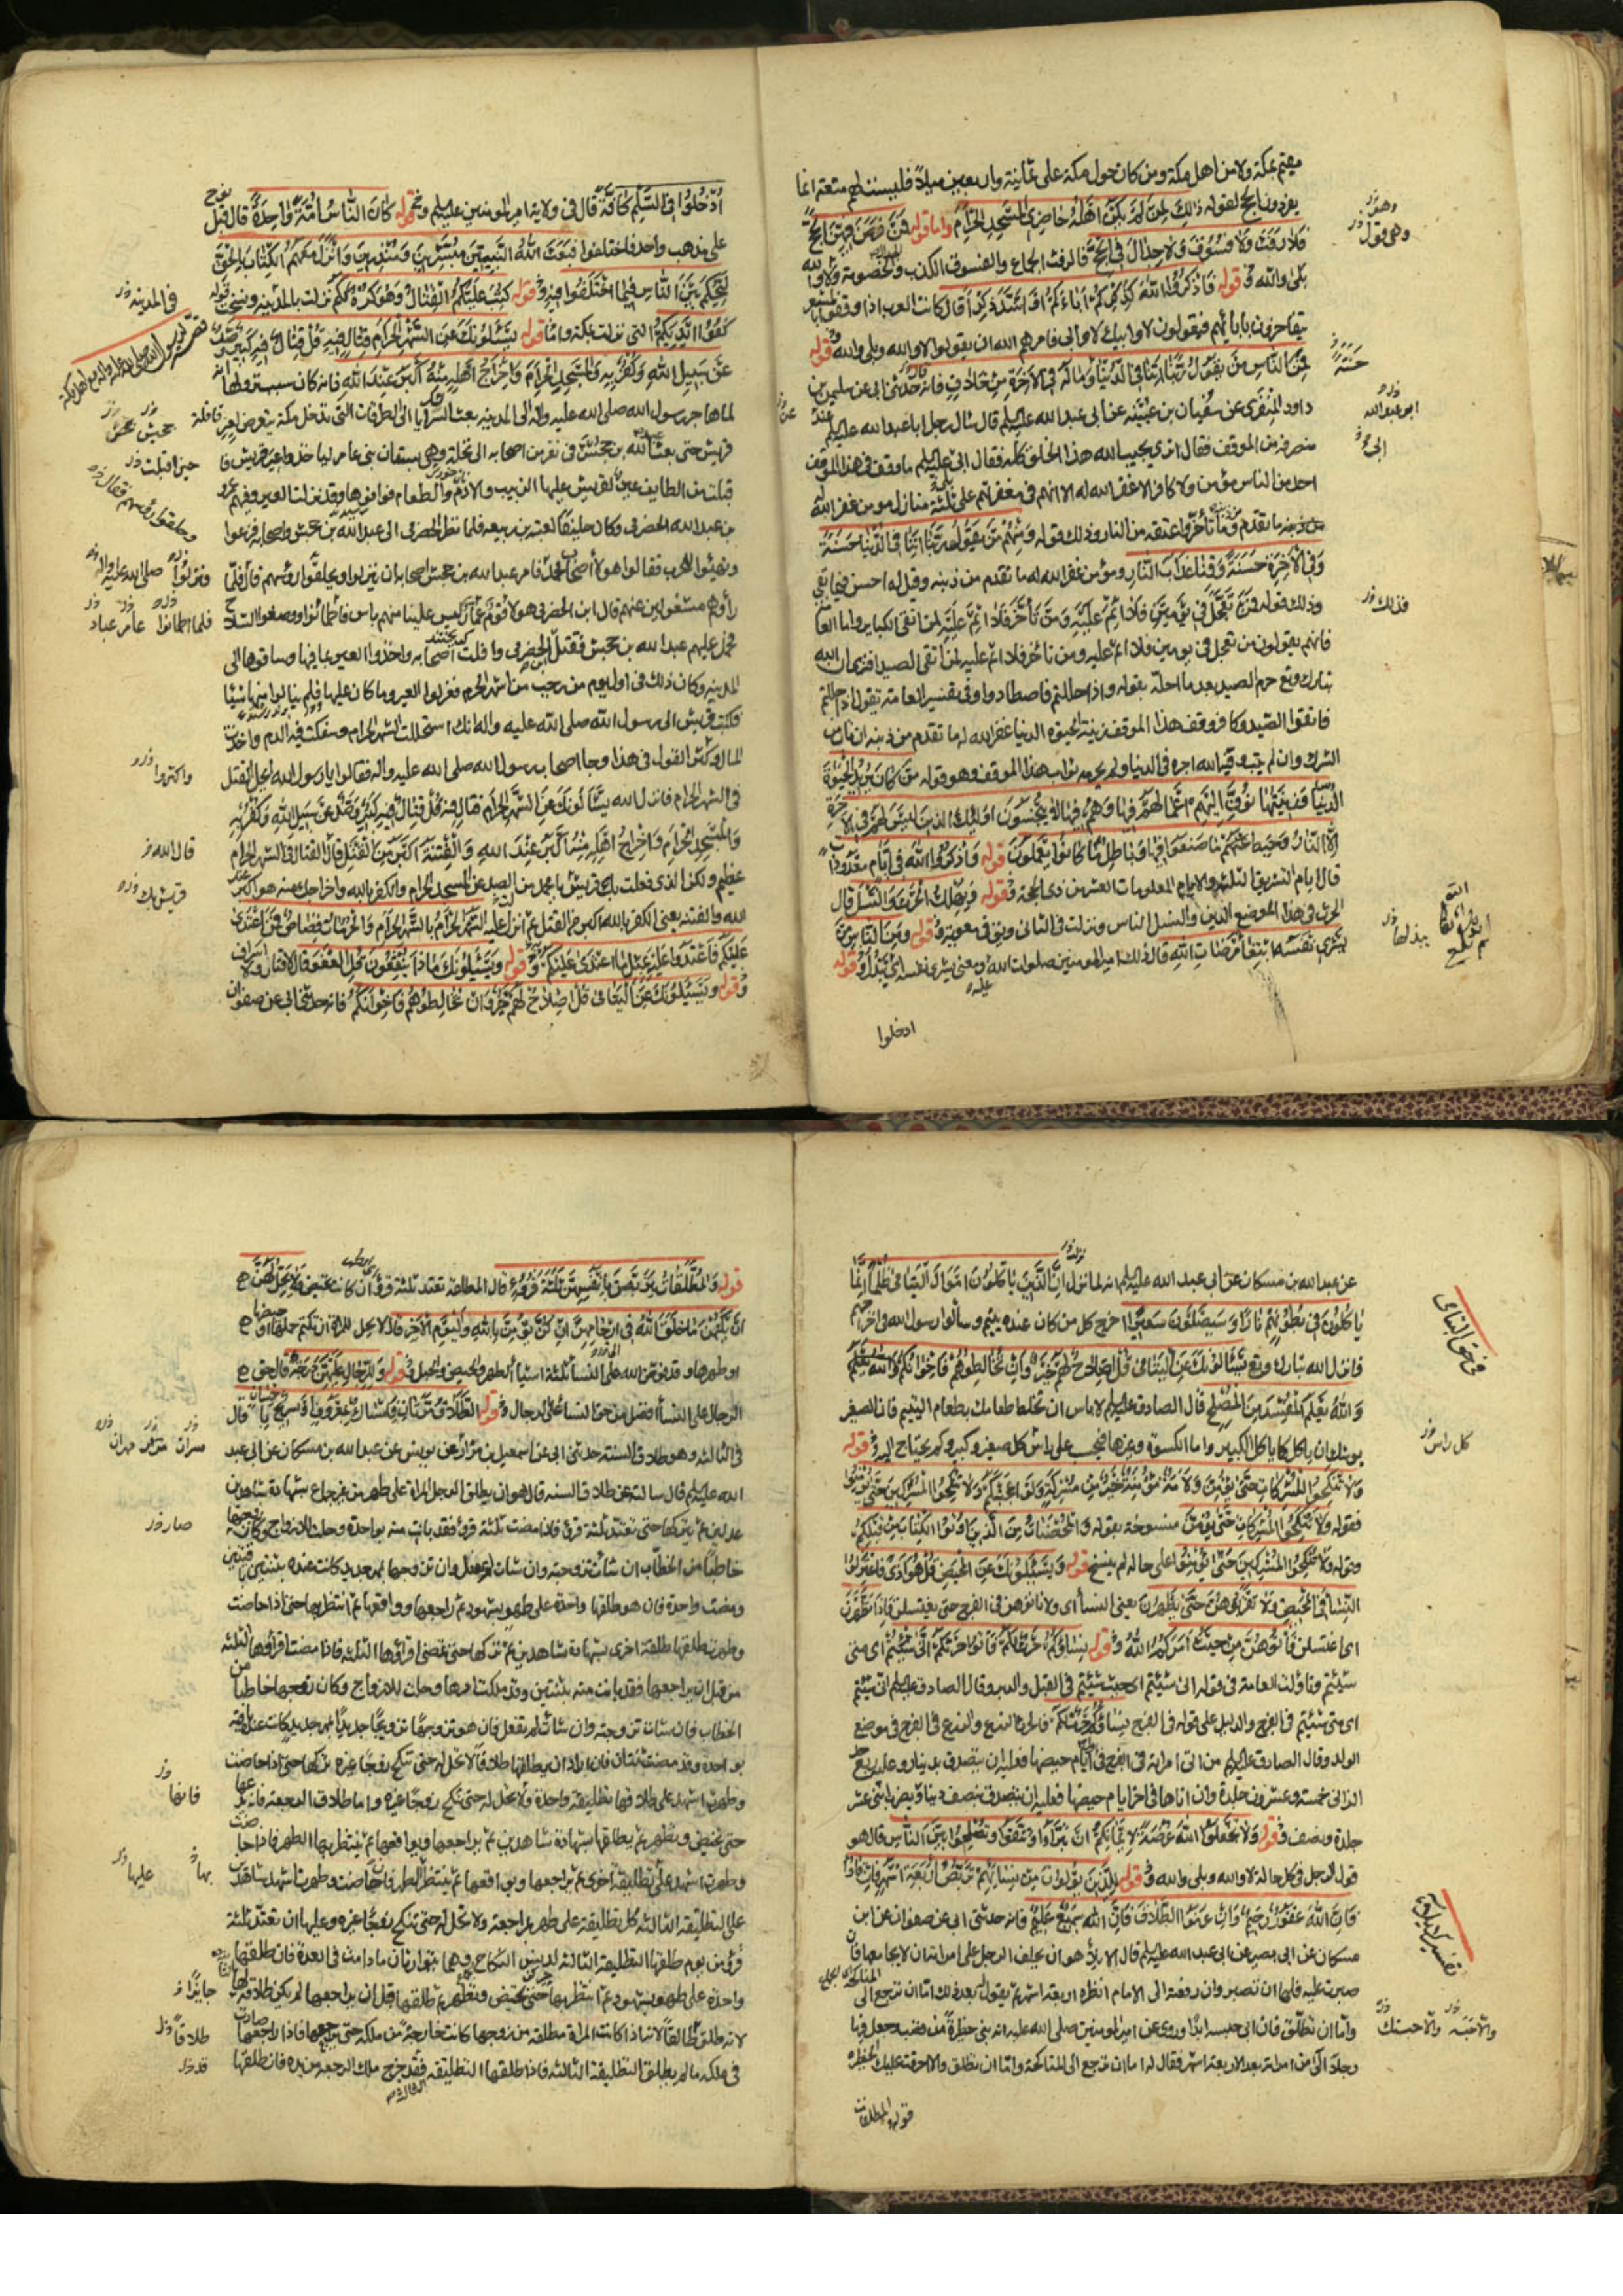 مقيم بمكة ولا من اهل مكة ومن كان حول مكة على ثمانية واربعين ميلا فليست لهم متعة انما
يفردون الحج لقوله ذٰلِكَ لِمَنْ لَمْ يَكُنْ اَهْلُهُ حَاضِرِي الْمَسْجِدِ الْحَرَامِ واما قوله فَمَنْ فَرَضَ فِيهِنَّ الْحَجَّ
فَلَا رَفَثَ وَلَا فُسُوقَ وَلَا جِدَالَ فِي الْحَجِّ فالرفث الجماع والفسوق الكذب والخصومة لا والله
بلى والله وقوله فَاذْكُرُوا اللهَ كَذِكْرِكُمْ اٰبَاءَكُمْ اَوْ اَشَدَّ ذِكْرًا قال كانت العرب اذا وقفوا بالمشعر
يتفاخرون بابائهم فيقولون لا وابيك لا وابى فامرهم الله ان يقولوا لا والله وبلى والله وقوله
فَمِنَ النَّاسِ مَنْ يَقُولُ رَبَّنَا اٰتِنَا فِي الدُّنْيَا وَمَا لَهُ فِي الْاٰخِرَةِ مِنْ خَلَاقٍ فانه حدثنى ابى عن سليمن بن
داود المنقرى عن سفيان بن عيينه عن ابى عبد الله عليه السلم قال سال رجل ابا عبد الله عليه السلم
منصرفه من الموقف فقال اترى يجيب الله هذا الخلق كله فقال ابى عليه السلم ما وقف فى هذا الموقف
احد من الناس مؤمن ولا كافر الا غفر الله له الا انهم فى مغفرتهم على ثلثة منازل مومن غفر الله
من ذنبه ما تقدم وما تأخر واعتقه من النار وذلك قوله وَمِنْهُمْ مَنْ يَقُولُ رَبَّنَا اٰتِنَا فِي الدُّنْيَا حَسَنَةً
وَفِي الْاٰخِرَةِ حَسَنَةً وَقِنَا عَذَابَ النَّارِ ومؤمن غفر الله له ما تقدم من ذنبه وقيل له احسن فيما بقى
وذلك قوله فَمَنْ تَعَجَّلَ فِي يَوْمَيْنِ فَلَا اِثْمَ عَلَيْهِ وَمَنْ تَاَخَّرَ فَلَا اِثْمَ عَلَيْهِ لمن اتقى الكباير واما العامة
فانهم يقولون من تعجل فى يومين فلا اثم عليه ومن تأخر فلا اثم عليه لمن اتقى الصيد افترى ان الله
تبارك وتع حرم الصيد بعد ما احله بقوله واذا حللتم فاصطادوا وفى تفسير العامة يقول اذا حللتم
فاتقوا الصيد وكافر وقف هذا الموقف زينة الحيوة الدنيا غفر الله له ما تقدم من ذنبه ان تاب من
الشرك وان لم يتب وفيه الله اجره فى الدنيا ولم يحرمه ثواب هذا الموقف وهو قوله مَنْ كَانَ يُرِيدُ الْحَيٰوةَ
الدُّنْيَا وَزِينَتَهَا نُوَفِّ اِلَيْهِمْ اَعْمَالَهُمْ فِيهَا وَهُمْ فِيهَا لَا يُبْخَسُونَ اُولٰئِكَ الَّذِينَ لَيْسَ لَهُمْ فِي الْاٰخِرَةِ
اِلَّا النَّارُ وَحَبِطَ مَا صَنَعُوا فِيهَا وَبَاطِلٌ مَا كَانُوا يَعْمَلُونَ قوله وَاذْكُرُوا اللهَ فِي اَيَّامٍ مَعْدُودَاتٍ
قال ايام التشريق الثلثه والايام المعلومات العشر من ذى الحجة وقوله وَيُهْلِكَ الْحَرْثَ وَالنَّسْلَ قال
الحرث فى هذا الموضع الدين والنسل الناس ونزلت فى الثانى وفى معوية وقوله وَمِنَ النَّاسِ مَنْ
يَشْرِي نَفْسَهُ ابْتِغَاءَ مَرْضَاتِ اللهِ قال ذلك امير المومنين صلوات الله عليه ومعنى يشرى نفسه اى يبذل وقوله
ادخلوا
اُدْخُلُوا فِي السِّلْمِ كَافَّةً قال فى ولاية امير المومنين عليه السلم وقوله كَانَ النَّاسُ اُمَّةً وَاحِدَةً قال قبل نوح
على مذهب واحد فاختلفوا فَبَعَثَ اللهُ النَّبِيِّينَ مُبَشِّرِينَ وَمُنْذِرِينَ وَاَنْزَلَ مَعَهُمُ الْكِتَابَ بِالْحَقِّ
لِيَحْكُمَ بَيْنَ النَّاسِ فِيمَا اخْتَلَفُوا فِيهِ وقوله كُتِبَ عَلَيْكُمُ الْقِتَالُ وَهُوَ كُرْهٌ لَكُمْ نزلت بالمدينه ونسخت قوله
كُفُّوا اَيْدِيَكُمْ التى نزلت بمكة واما قوله يَسْئَلُونَكَ عَنِ الشَّهْرِ الْحَرَامِ قِتَالٍ فِيهِ قُلْ قِتَالٌ فِيهِ كَبِيرٌ وَصَدٌّ
عَنْ سَبِيلِ اللهِ وَكُفْرٌ بِهِ وَالْمَسْجِدِ الْحَرَامِ وَاِخْرَاجُ اَهْلِهِ مِنْهُ اَكْبَرُ عِنْدَ اللهِ فانه كان سبب نزولها انه
لما هاجر رسول الله صلى الله عليه واله الى المدينه بعث السرايا الى الطرقات التى تدخل مكة يتعرض لعير
قريش حتى بعث عبد الله بن جحش فى نفر من اصحابه الى نخلة وهى بستان بنى عامر لياخذوا عير قريش
اقبلت من الطايف عير لقريش عليها الزبيب والادم والطعام فوافوها وقد نزلت العير وفيهم عمرو
بن عبد الله الحضرمى وكان حليفا لعتبه بن ربيعه فلما نظر الحضرمى الى عبد الله بن جحش واصحابه فزعوا
وتهيئوا للحرب فقالوا هولاء اصحاب محمد فامر عبد الله بن جحش اصحابه ان ينزلوا ويحلقوا رؤسهم
قال ابن الحضرمى هولاء قوم عمار ليس علينا منهم باس فاطمأنوا ووضعوا السلاح
فحمل عليهم عبد الله بن جحش فقتل ابن الحضرمى وافلت اصحابه واخذوا العير بما فيها وساقوها الى
المدينه وكان ذلك فى اول يوم من رجب من اشهر الحرم فعزلوا العير وما كان عليها فلم ينالوا منها شيئا
فكتبت قريش الى رسول الله صلى الله عليه واله انك استحللت الشهر الحرام وسفكت فيه الدم واخذت
المال وكثر القول فى هذا وجاء اصحاب رسول الله صلى الله عليه واله فقالوا يا رسول الله ايحل القتل
فى الشهر الحرام فانزل الله يَسْئَلُونَكَ عَنِ الشَّهْرِ الْحَرَامِ قِتَالٍ فِيهِ قُلْ قِتَالٌ فِيهِ كَبِيرٌ وَصَدٌّ عَنْ سَبِيلِ اللهِ وَكُفْرٌ بِهِ
وَالْمَسْجِدِ الْحَرَامِ وَاِخْرَاجُ اَهْلِهِ مِنْهُ اَكْبَرُ عِنْدَ اللهِ وَالْفِتْنَةُ اَكْبَرُ مِنَ الْقَتْلِ قال القتال فى الشهر الحرام
عظيم ولكن الذى فعلت بك قريش يا محمد من الصد عن المسجد الحرام والكفر بالله واخراجك منه هو اكبر عند
الله والفتنه يعنى الكفر بالله اكبر من القتل ثم انزل عليه الشَّهْرُ الْحَرَامُ بِالشَّهْرِ الْحَرَامِ وَالْحُرُمَاتُ قِصَاصٌ فَمَنِ اعْتَدٰى
عَلَيْكُمْ فَاعْتَدُوا عَلَيْهِ بِمِثْلِ مَا اعْتَدٰى عَلَيْكُمْ وقوله وَيَسْئَلُونَكَ مَاذَا يُنْفِقُونَ قُلِ الْعَفْوَ قال لا اقتار ولا اسراف
وقوله وَيَسْئَلُونَكَ عَنِ الْيَتَامٰى قُلْ اِصْلَاحٌ لَهُمْ خَيْرٌ وَاِنْ تُخَالِطُوهُمْ فَاِخْوَانُكُمْ فانه حدثنى ابى عن صفوان
عن عبد الله بن مسكان عن ابى عبد الله عليه السلم انه لما نزل اِنَّ الَّذِينَ يَاْكُلُونَ اَمْوَالَ الْيَتَامٰى ظُلْمًا اِنَّمَا
يَاْكُلُونَ فِي بُطُونِهِمْ نَارًا وَسَيَصْلَوْنَ سَعِيرًا اخرج كل من كان عنده يتيم وسألوا رسول الله فى اخراجهم
فانزل الله تبارك وتع يَسْئَلُونَكَ عَنِ الْيَتَامٰى قُلْ اِصْلَاحٌ لَهُمْ خَيْرٌ وَاِنْ تُخَالِطُوهُمْ فَاِخْوَانُكُمْ
وَاللهُ يَعْلَمُ الْمُفْسِدَ مِنَ الْمُصْلِحِ قال الصادق عليه السلم لا باس ان تخلط طعامك بطعام اليتيم فان الصغير
يوشك ان ياكل كما ياكل الكبير واما الكسوة وغيرها فيحسب على راس كل صغير وكبير وكم يحتاج اليه وقوله
وَلَا تَنْكِحُوا الْمُشْرِكَاتِ حَتّٰى يُؤْمِنَّ وَلَاَمَةٌ مُؤْمِنَةٌ خَيْرٌ مِنْ مُشْرِكَةٍ وَلَوْ اَعْجَبَتْكُمْ وَلَا تُنْكِحُوا الْمُشْرِكِينَ حَتّٰى يُؤْمِنُوا
فقوله وَلَا تَنْكِحُوا الْمُشْرِكَاتِ حَتّٰى يُؤْمِنَّ منسوخة بقوله وَالْمُحْصَنَاتُ مِنَ الَّذِينَ اُوتُوا الْكِتَابَ مِنْ قَبْلِكُمْ
وقوله وَلَا تُنْكِحُوا الْمُشْرِكِينَ حَتّٰى يُؤْمِنُوا على حاله لم ينسخ قوله وَيَسْئَلُونَكَ عَنِ الْمَحِيضِ قُلْ هُوَ اَذًى فَاعْتَزِلُوا
النِّسَاءَ فِي الْمَحِيضِ وَلَا تَقْرَبُوهُنَّ حَتّٰى يَطْهُرْنَ يعنى النساء اى ولا تاتوهن فى الفرج حتى يغتسلن فَاِذَا تَطَهَّرْنَ
اى اغتسلن فَاْتُوهُنَّ مِنْ حَيْثُ اَمَرَكُمُ اللهُ وقوله نِسَاؤُكُمْ حَرْثٌ لَكُمْ فَاْتُوا حَرْثَكُمْ اَنّٰى شِئْتُمْ اى متى
شئتم وتاولت العامة فى قوله انى شئتم اى حيث شئتم فى القبل والدبر وقال الصادق عليه السلم انى شئتم
اى متى شئتم فى الفرج والدليل على قوله فى الفرج نِسَاؤُكُمْ حَرْثٌ لَكُمْ فالحرث الزرع والزرع فى الفرج فى موضع
الولد وقال الصادق عليه السلم من اتى امراته فى الفرج فى ايام حيضها فعليه ان يتصدق بدينار وعليه ربع حد
الزانى خمسة وعشرون جلدة وان اتاها فى اخر ايام حيضها فعليه ان يتصدق بنصف دينار ويضرب اثنى عشر
جلدة ونصف وقوله وَلَا تَجْعَلُوا اللهَ عُرْضَةً لِاَيْمَانِكُمْ اَنْ تَبَرُّوا وَتَتَّقُوا وَتُصْلِحُوا بَيْنَ النَّاسِ قال هو
قول الرجل فى كل حالة لا والله وبلى والله وقوله لِلَّذِينَ يُؤْلُونَ مِنْ نِسَائِهِمْ تَرَبُّصُ اَرْبَعَةِ اَشْهُرٍ فَاِنْ فَاءُوا
فَاِنَّ اللهَ غَفُورٌ رَحِيمٌ وَاِنْ عَزَمُوا الطَّلَاقَ فَاِنَّ اللهَ سَمِيعٌ عَلِيمٌ فانه حدثنى ابى عن صفوان عن ابن
مسكان عن ابى بصير عن ابى عبد الله عليه السلم قال الايلاء هو ان يحلف الرجل على امراته ان لا يجامعها فان
صبرت عليه فلها ان تصبر وان رفعته الى الامام انظره اربعة اشهر ثم يقول له بعد ذلك اما ان ترجع الى المناكحة
واما ان تطلق فان ابى حبسه ابدا وروى عن امير المومنين صلى الله عليه انه بنى حظيرة من قصب وجعل فيها
رجلا الى من امراته بعد الاربعة اشهر فقال له اما ان ترجع الى المناكحة واما ان تطلق والا احرقت عليك الحظيره
قوله والمطلقات
قوله وَالْمُطَلَّقَاتُ يَتَرَبَّصْنَ بِاَنْفُسِهِنَّ ثَلٰثَةَ قُرُوءٍ قال المطلقة تعتد ثلثة قروء ان كانت تحيض وَلَا يَحِلُّ لَهُنَّ
اَنْ يَكْتُمْنَ مَا خَلَقَ اللهُ فِي اَرْحَامِهِنَّ اِنْ كُنَّ يُؤْمِنَّ بِاللهِ وَالْيَوْمِ الْاٰخِرِ قال لا يحل للمراة ان تكتم حملها او حيضها
او طهرها وقد فوض الله الى النساء ثلثة اشياء الطهر والحيض والحبل وقوله وَلِلرِّجَالِ عَلَيْهِنَّ دَرَجَةٌ قال حق
الرجال على النساء افضل من حق النساء على الرجال وقوله اَلطَّلَاقُ مَرَّتَانِ فَاِمْسَاكٌ بِمَعْرُوفٍ اَوْ تَسْرِيحٌ بِاِحْسَانٍ قال
فى الثالثه وهو طلاق السنة حدثنى ابى عن اسمعيل بن مرار عن يونس عن عبد الله بن مسكان عن ابى عبد
الله عليه السلم قال سالته عن طلاق السنه قال هو ان يطلق الرجل المراة على طهر من غير جماع بشهادة شاهدين
عدلين ثم يتركها حتى تعتد ثلثة قروء فاذا مضت ثلثة قروء فقد بانت منه بواحدة وحلت للازواج وكان زوجها
خاطبا من الخطاب ان شاءت تزوجته وان شاءت لم تفعل وان تزوجها بمهر جديد كانت عنده بثنتين باقيتين
ومضت واحدة فان هو طلقها واحدة على طهر بشهود ثم راجعها وواقعها ثم انتظر بها حتى اذا حاضت
وطهرت طلقها طلقة اخرى بشهادة شاهدين ثم تركها حتى تمضى اقراؤها الثلثه فاذا مضت اقراؤها الثلثه
من قبل ان يراجعها فقد بانت منه بثنتين وقد ملكت امرها وحلت للازواج وكان زوجها خاطبا من
الخطاب فان شاءت تزوجته وان شاءت لم تفعل فان هو تزوجها تزويجا جديدا بمهر جديد كانت عنده باقية
بواحدة وقد مضت ثنتان فان اراد ان يطلقها طلاقا لا تحل له حتى تنكح زوجا غيره تركها حتى اذا حاضت
وطهرت اشهد على طلاقها تطليقة واحدة ولا تحل له حتى تنكح زوجا غيره واما طلاق الرجعة فانه يدعها
حتى تحيض وتطهر ثم يطلقها بشهادة شاهدين ثم يراجعها ويواقعها ثم ينتظر بها الطهر فاذا حاضت
وطهرت اشهد على تطليقة اخرى ثم يراجعها ويواقعها ثم ينتظر الطهر فاذا حاضت وطهرت اشهد شاهدين
على التطليقه الثالثه كل تطليقة على طهر بمراجعة ولا تحل له حتى تنكح زوجا غيره وعليها ان تعتد ثلثة
قروء من يوم طلقها التطليقة الثالثه لدنس النكاح وهما يتوارثان ما دامت فى العدة فان طلقها
واحدة على طهر بشهود ثم انتظر بها حتى تحيض وتطهر ثم طلقها قبل ان يراجعها لم يكن طلاقه لها
لانه طلق طالقا لانه اذا كانت المراة مطلقة من زوجها كانت خارجة من ملكه حتى يراجعها فاذا راجعها صارت
فى ملكه ما لم يطلق التطليقة الثالثه فاذا طلقها التطليقه الثالثه فقد خرج ملك الرجعة من يده فان طلقها
فى حق اليتامى
كل راس
تفسير الايلاء
صار
فانها
عليها
طلاقا
قال الله
فى المدينه
فذلك